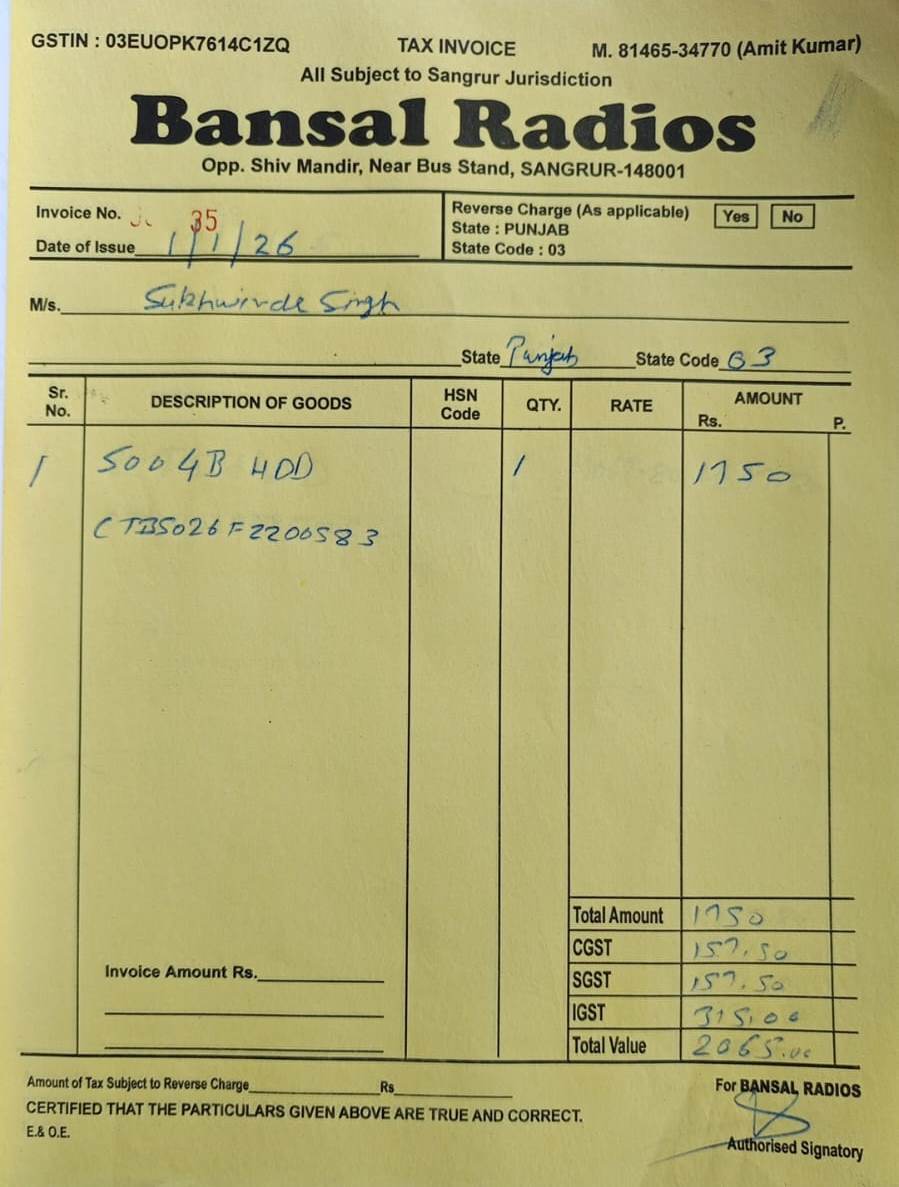 GSTIN : 03EUOPK7614C1ZQ TAX INVOICE M. 81465-34770 (Amit Kumar)
All Subject to Sangrur Jurisdiction
Bansal Radios
Opp. Shiv Mandir, Near Bus Stand, SANGRUR-148001
Invoice No. 35
Date of Issue 1/1/26
Reverse Charge (As applicable) Yes No
State : PUNJAB
State Code : 03
M/s. Sukhwinde Singh
State Punjab State Code 03
Sr. No. DESCRIPTION OF GOODS HSN Code QTY. RATE AMOUNT Rs. P.
1 500 GB HDD 1 1750
CTBS026F2200583
Total Amount 1750
CGST 157.50
Invoice Amount Rs.
SGST 157.50
IGST 315.00
Total Value 2065.00
Amount of Tax Subject to Reverse Charge Rs
For BANSAL RADIOS
CERTIFIED THAT THE PARTICULARS GIVEN ABOVE ARE TRUE AND CORRECT.
E.& O.E.
Authorised Signatory